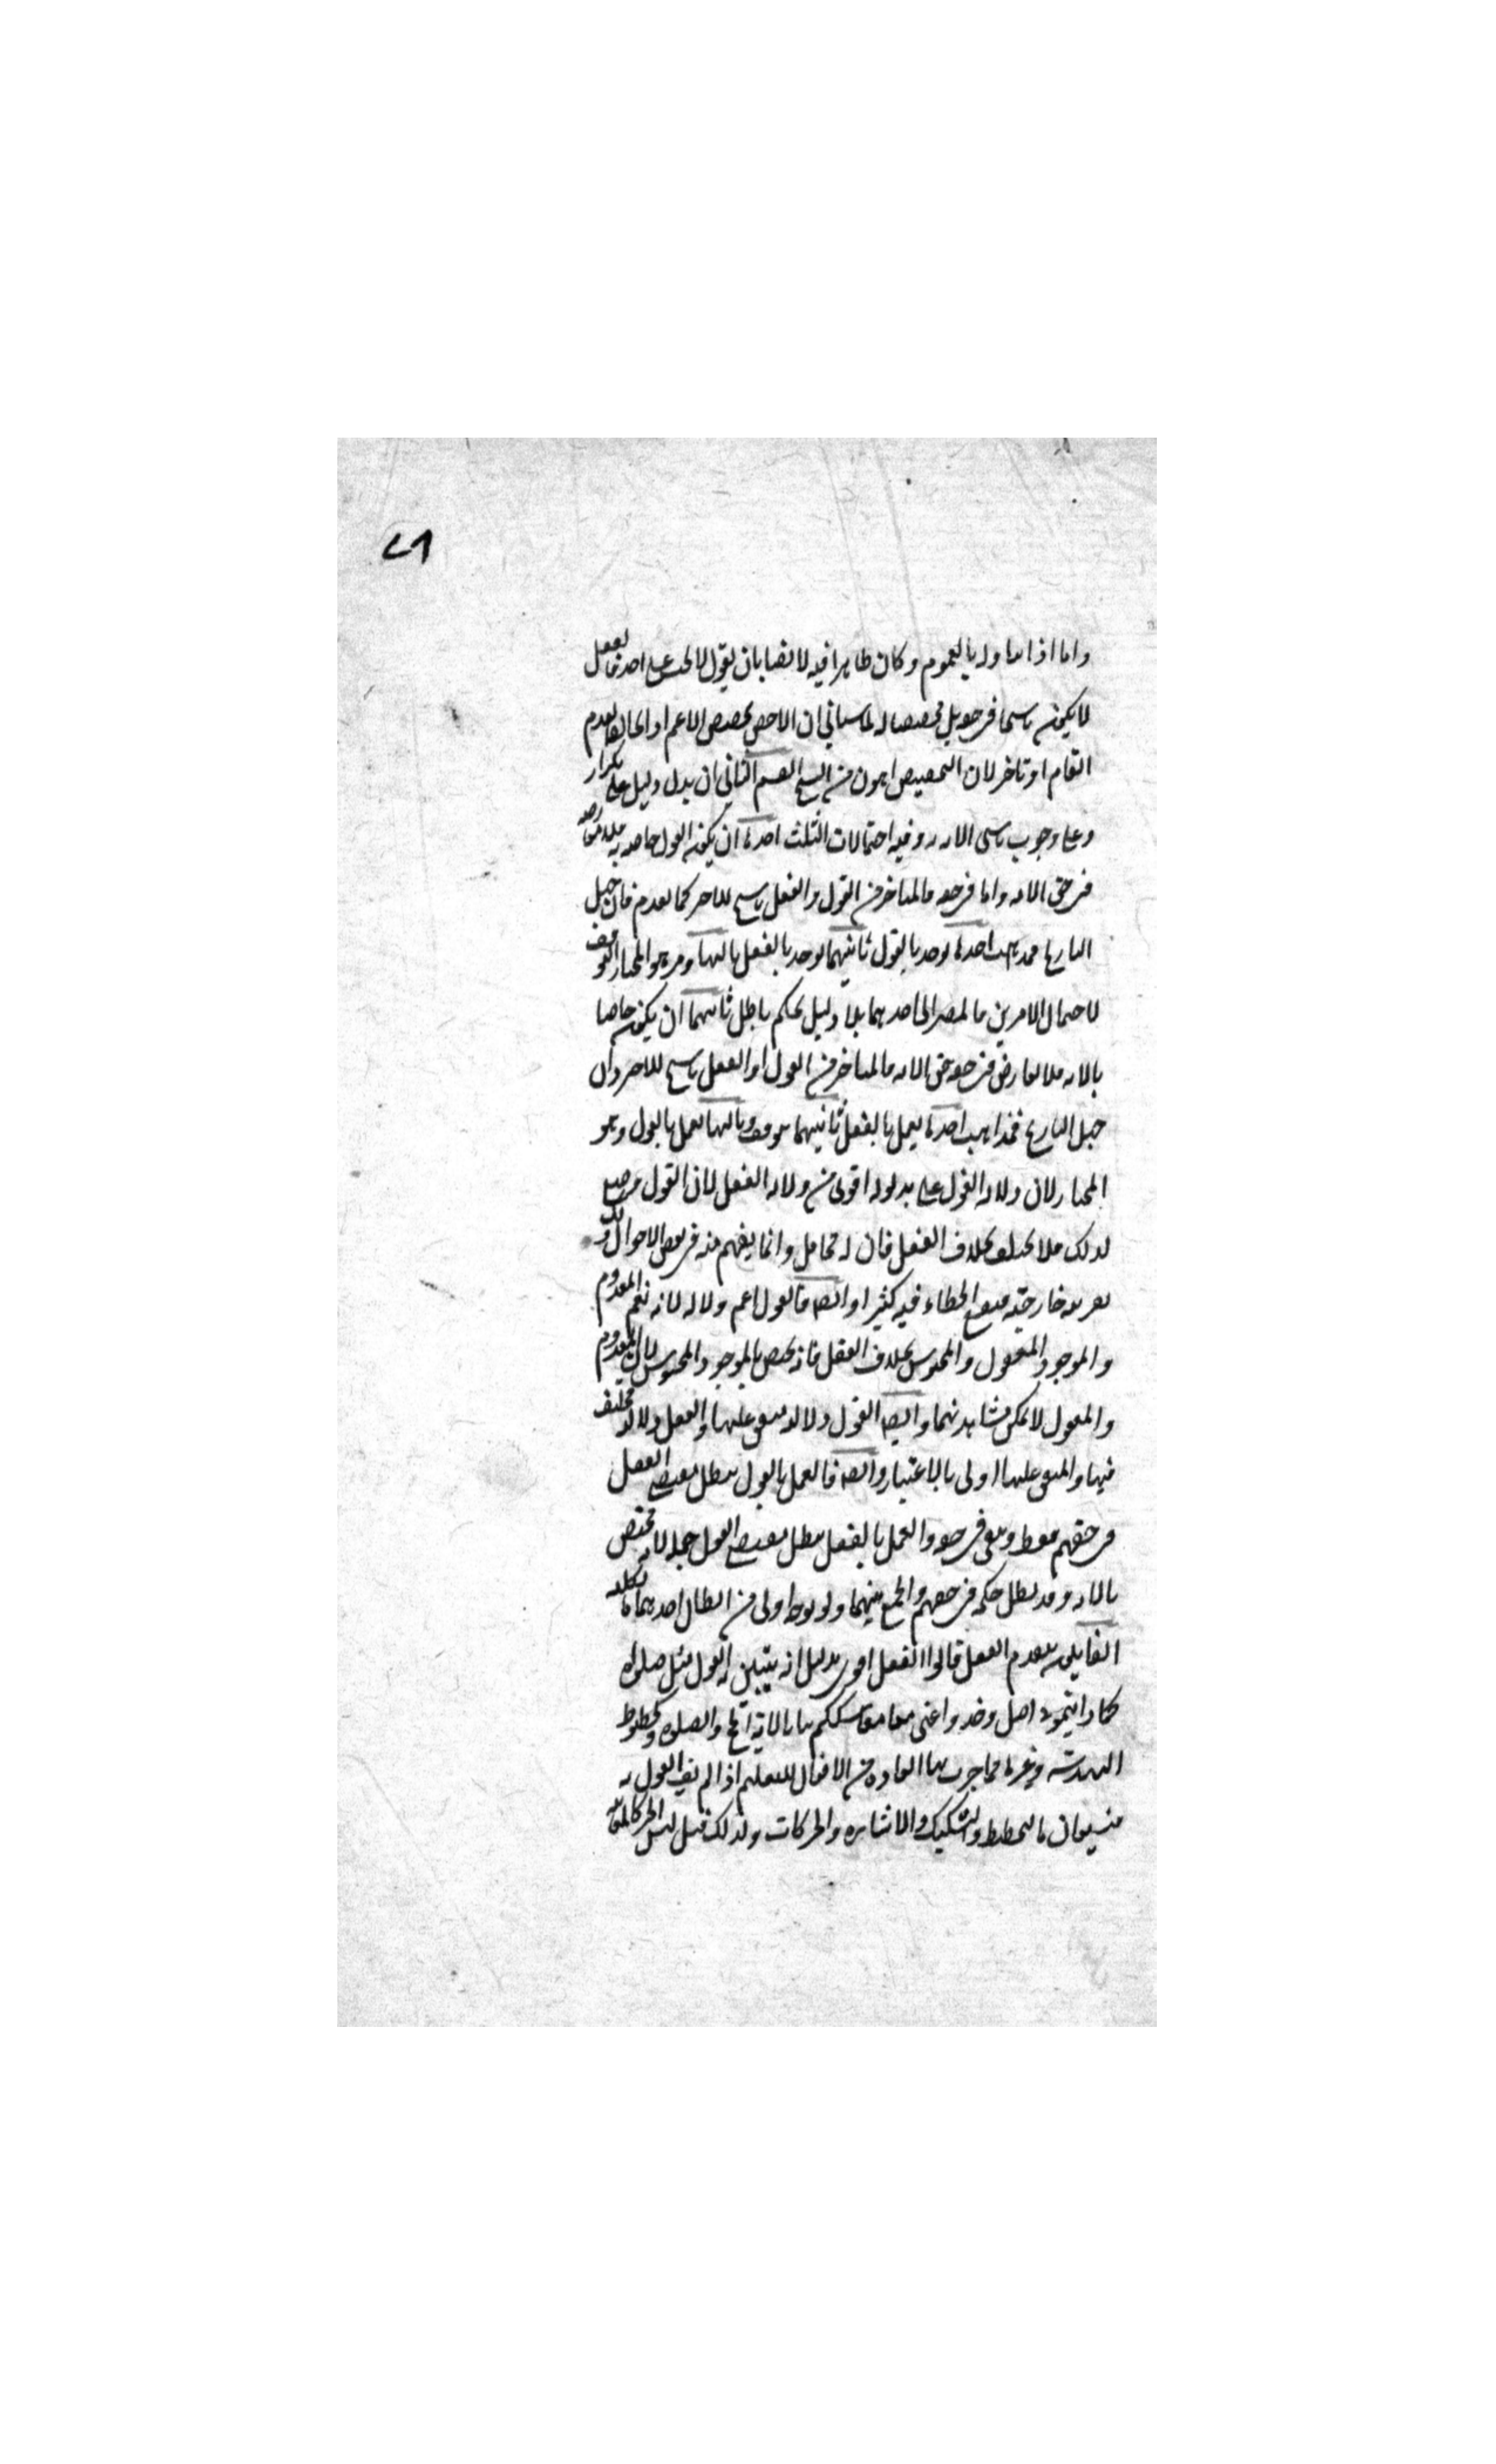 ٤٦
واما اذا تناوله بالعموم وكان ظاهرا فيه لا نصا بان يقول لا يجب على احد فالفعل
لا يكون ناسخا في حقه بل مخصصا له لما سياتي ان الاخص يخصص الاعم اذا خالفه تقدم
العام او تاخر لان التخصيص اهون من النسخ القسم الثاني ان يدل دليل على تكرار
وعلى وجوب تاسي الامة به وفيه احتمالات الثلث احدها ان يكون القول خاصا به فلا معارضة
في حق الامة واما في حقه فالمتاخر من القول والفعل ناسخ للاخر كما تقدم فان جهل
التاريخ فمذاهب احدها يوخذ بالقول ثانيهما يوخذ بالفعل ثالثها وهو المختار التوقف
لاحتمال الامرين فالمصير الى احدهما بلا دليل تحكم باطل ثانيهما ان يكون خاصا
بالامة فلا تعارض في حقه وفي حق الامة فالمتاخر من القول او الفعل ناسخ للاخر وان
جهل التاريخ فمذاهب احدها يعمل بالفعل ثانيهما يتوقف وثالثها يعمل بالقول وهو
المختار لان دلالة القول على مدلوله اقوى من دلالة الفعل لان القول وضع
لذلك فلا يختلف بخلاف الفعل فان له محامل وانما يفهم منه في بعض الاحوال ذلك
بقرينة خارجية فيقع الخطاء فيه كثيرا وايضا فالقول اعم دلالة لانه يعم المعدوم
والموجود المعقول والمحسوس بخلاف الفعل فانه يختص بالموجود المحسوس لان المعدوم
والمعقول لا يمكن مشاهدتهما وايضا القول دلالته متفق عليها والفعل دلالته مختلف
فيها والمتفق عليها اولى بالاعتبار وايضا فالعمل بالقول يبطل مقتضى الفعل
في حقهم فقط ويبقى في حقه والعمل بالفعل يبطل مقتضى القول جملة لانه مختص
بالامة وقد بطل حكمه في حقهم والجمع بينهما ولو بوجه اولى من ابطال احدهما بالكلية
القايلون بتقدم الفعل قالوا الفعل اقوى بدليل انه يتبين به القول مثل صلوا
كما رايتموني اصلي وخذوا عني مناسككم بيانا لآية الحج والصلوة وكخطوط
الهندسة وغيرها مما جرت بها العادة من الافعال للتعليم اذا لم يف القول به
فيستعان بالتخطيط والتشكيك والاشارة والحركات ولذلك قيل ليس الخبر كالمعاينة